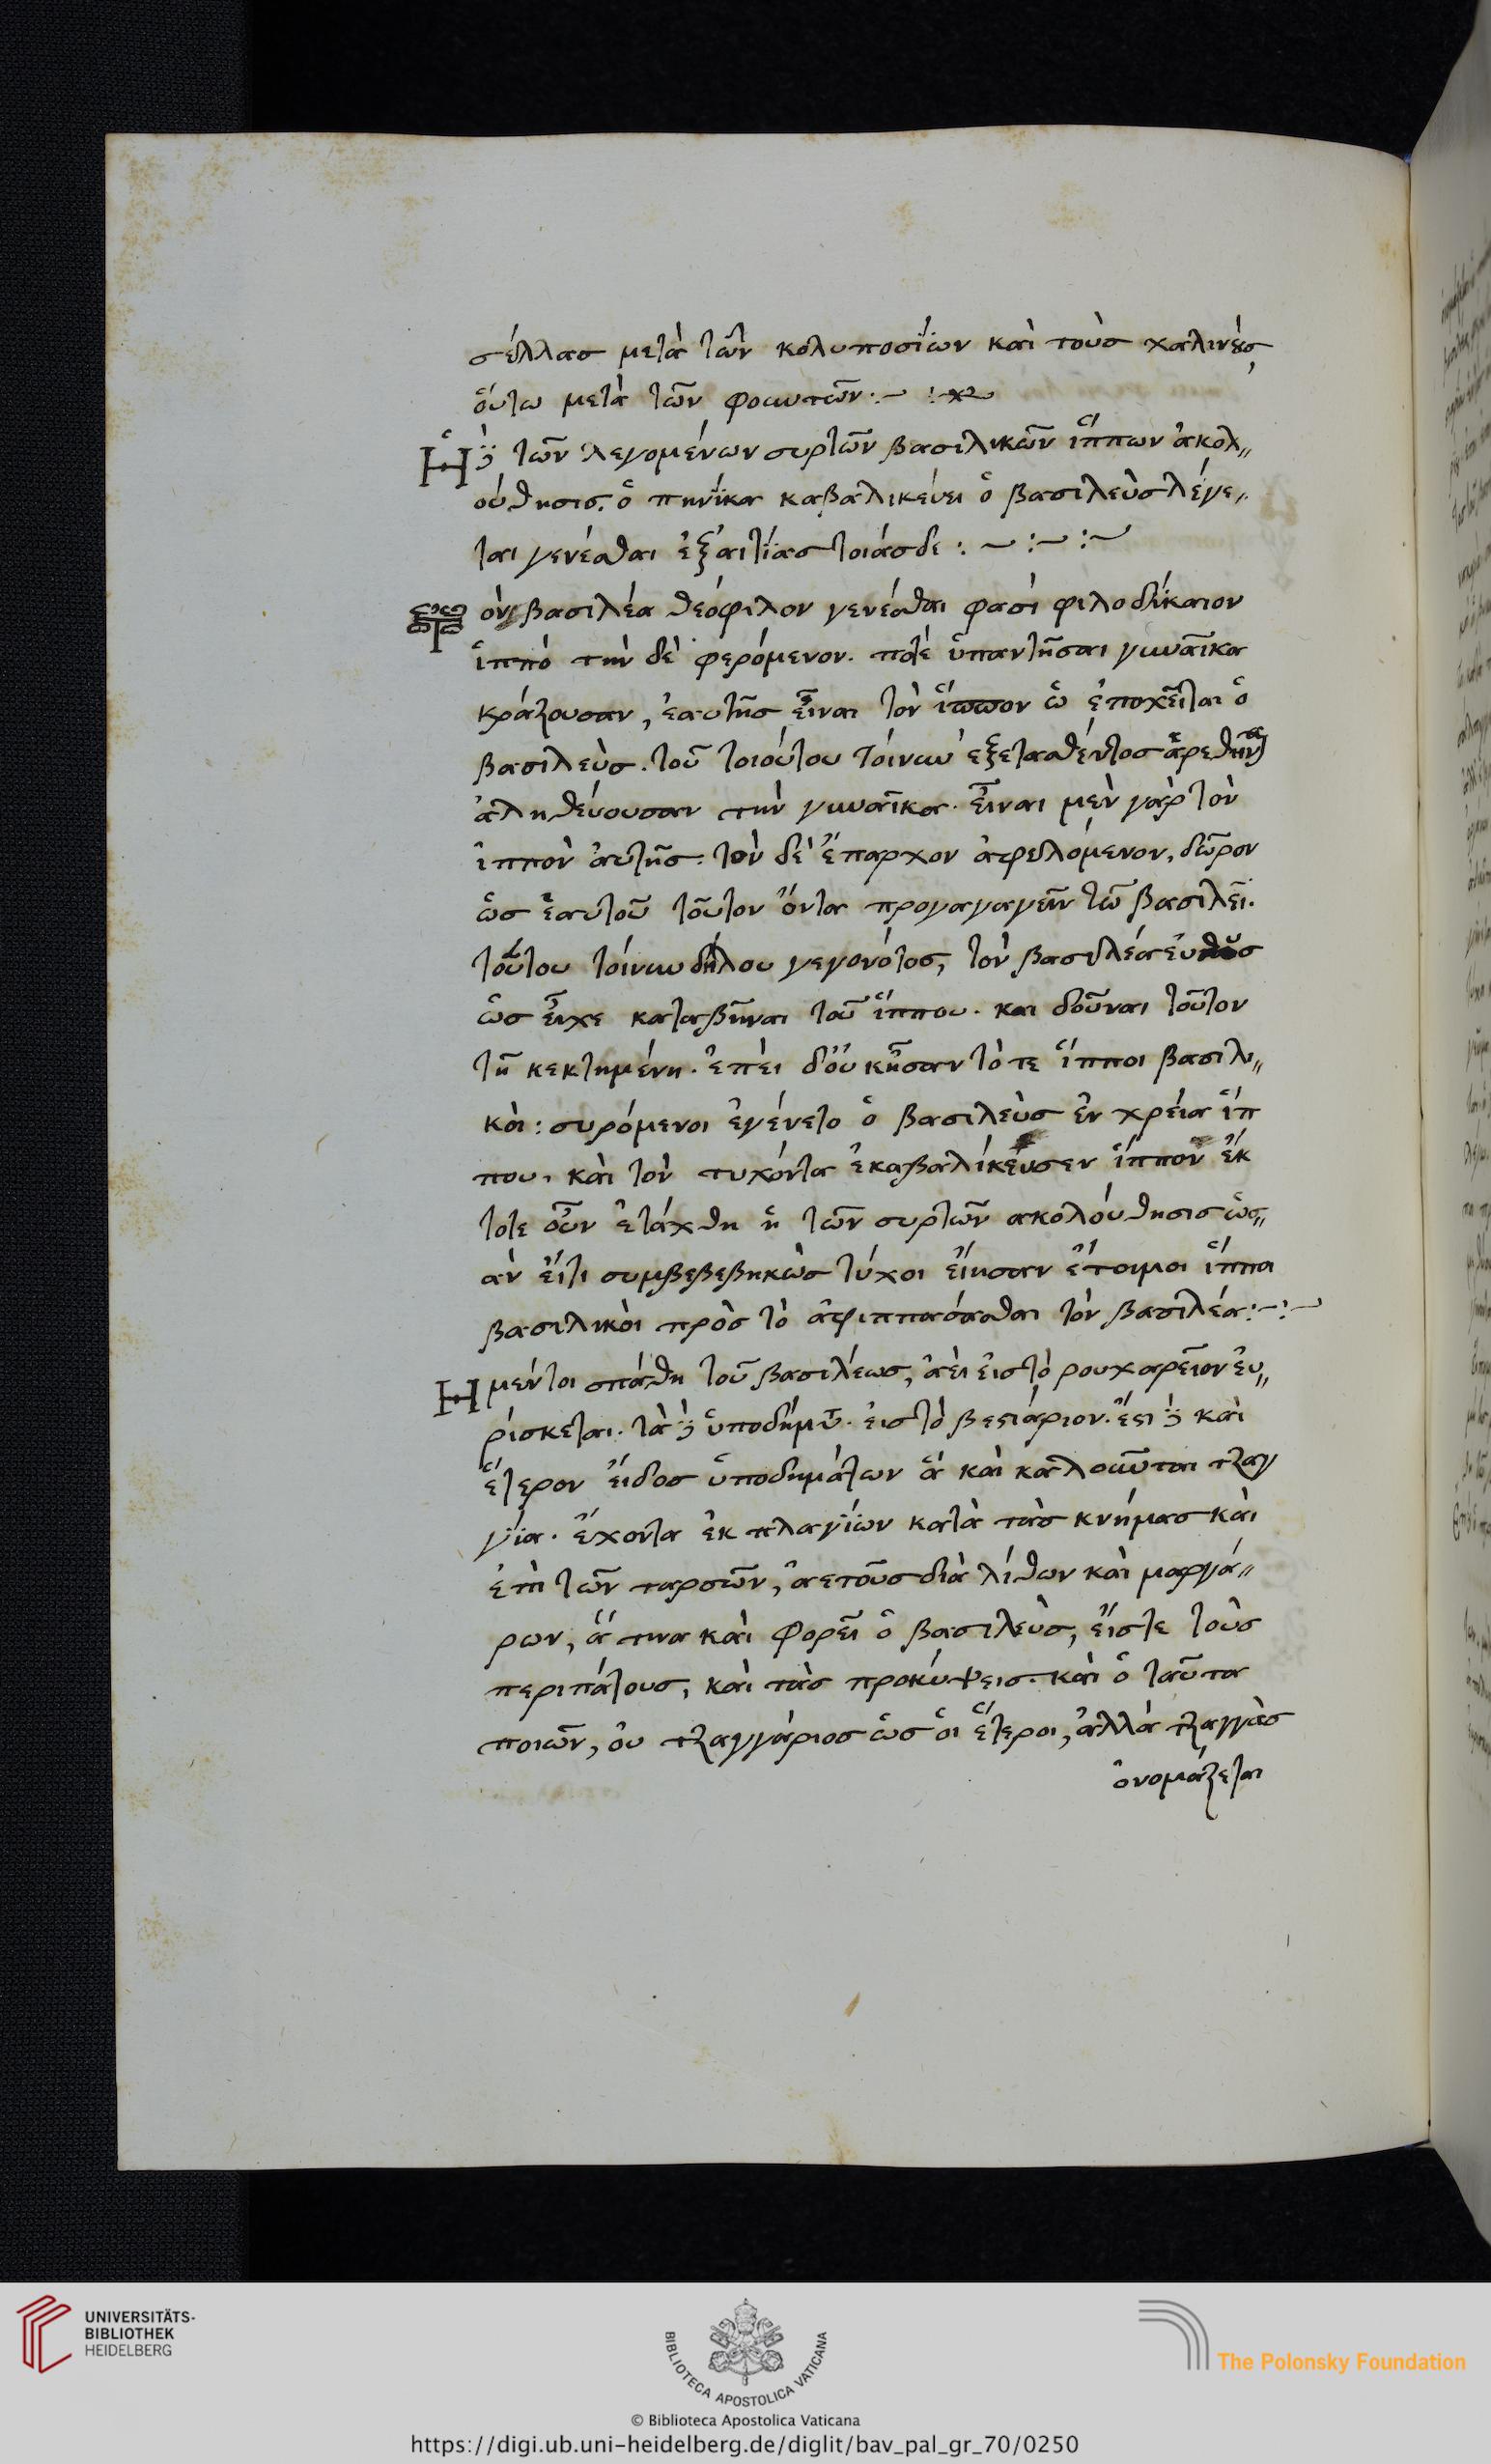 σέλλασ μετὰ τῶν κολυποσΐων καὶ τοὺσ χαλινοὺς
ὅυτω μετὰ τῶν φοιυτῶν :~ :~
Ἡ δὲ τῶν λεγομένων συρτῶν βασιλικῶν ἵππων ἀκολ〃
ούθησισ. ὁ πηνίκα καβαλικέυει ὁ βασιλεὺσ λέγε〃
ται γενέσθαι ἐξ αιτΐασ τοιάσδε : ~ :~ :~
Τὸν βασιλέα θεόφιλον γενέσθαι φασὶ φιλοδίκαιον
ἱππό την δὲ φερόμενον. ποτὲ ὑπαντῆσαι γυναῖκα
κράζουσαν, ἑαυτῆσ εἶναι τὸν ἵππον ὧ ἐποχεῖται ὁ
βασιλεὺσ. τοῦ τοιούτου τοίνυν ἐξετασθέντοσ
ἀληθέυουσαν τὴν γυναῖκα. εἶναι μὲν γὰρ τὸν
ἱππον ἀυτῆσ. τὸν δὲ ἔπαρχον ἀφελόμενον, δῶρον
ὡσ ἑαυτοῦ τοῦτον ὄντα προγαγαγεῖν τῶ βασιλεῖ.
τούτου τοίνυν δήλου γεγονότοσ, τὸν βασιλέα ἐυθὺσ
ὡσ εἶχε καταβῆναι τοῦ ἵππου. και δοῦναι τοῦτον
τῆ κεκτημένη. ἐπεὶ δ' ὀυκ ἦσαν τότε ἵπποι βασιλι〃
κὸι: συρόμενοι ἐγένετο ὁ βασιλεὺσ ἐν χρεία ἵπ
που, καὶ τὸν τυχόντα ἐκαβαλίκευσεν ἵππον ἔκ
τοτε οὖν ἐτάχθη ἡ τῶν συρτῶν ακολούθησισ ὡσ〃
ὰν ἔιτι συμβεβεβηκὼσ τύχοι ἔιησαν ἕτοιμοι ἵπποι
βασιλικὸι πρὸσ τὸ ἀφιππασάσθαι τὸν βασιλέα:~:~
Ἡ μέντοι σπάθη τοῦ βασιλέωσ, ἀεὶ εἰστὸ ρουχαρεῖον ἐυ〃
ρίσκεται. τὰ δὲ ὑποδήμτ. ἐιστὸ βεστιάριον. ἔστι δὲ καὶ
ἕτερον ἔιδοσ ὑποδημάτων ἃ καὶ καλοῦνται τζαγ
γΐα. ἔχοντα ἐκ πλαγΐων κατὰ τὰσ κνήμασ καὶ
ἐπὶ τῶν ταρσῶν, ἀετοὺσ διὰ λίθων καὶ μαργά〃
ρων, ἅ τινα καὶ φορεῖ ὁ βασιλεὺσ, ἔισ τε τοὺσ
περιπάτουσ, καὶ τὰσ προκύψεισ. καὶ ὁ ταῦτα
ποιῶν, ὀυ τζαγγάριοσ ὡσ ὁι ἕτεροι, ἀλλὰ τζαγγὰσ
ὀνομάζεται
UNIVERSITÄTS-
BIBLIOTHEK
HEIDELBERG
BIBLIOTECA APOSTOLICA VATICANA
The Polonsky Foundation
© Biblioteca Apostolica Vaticana
https://digi.ub.uni-heidelberg.de/diglit/bav_pal_gr_70/0250